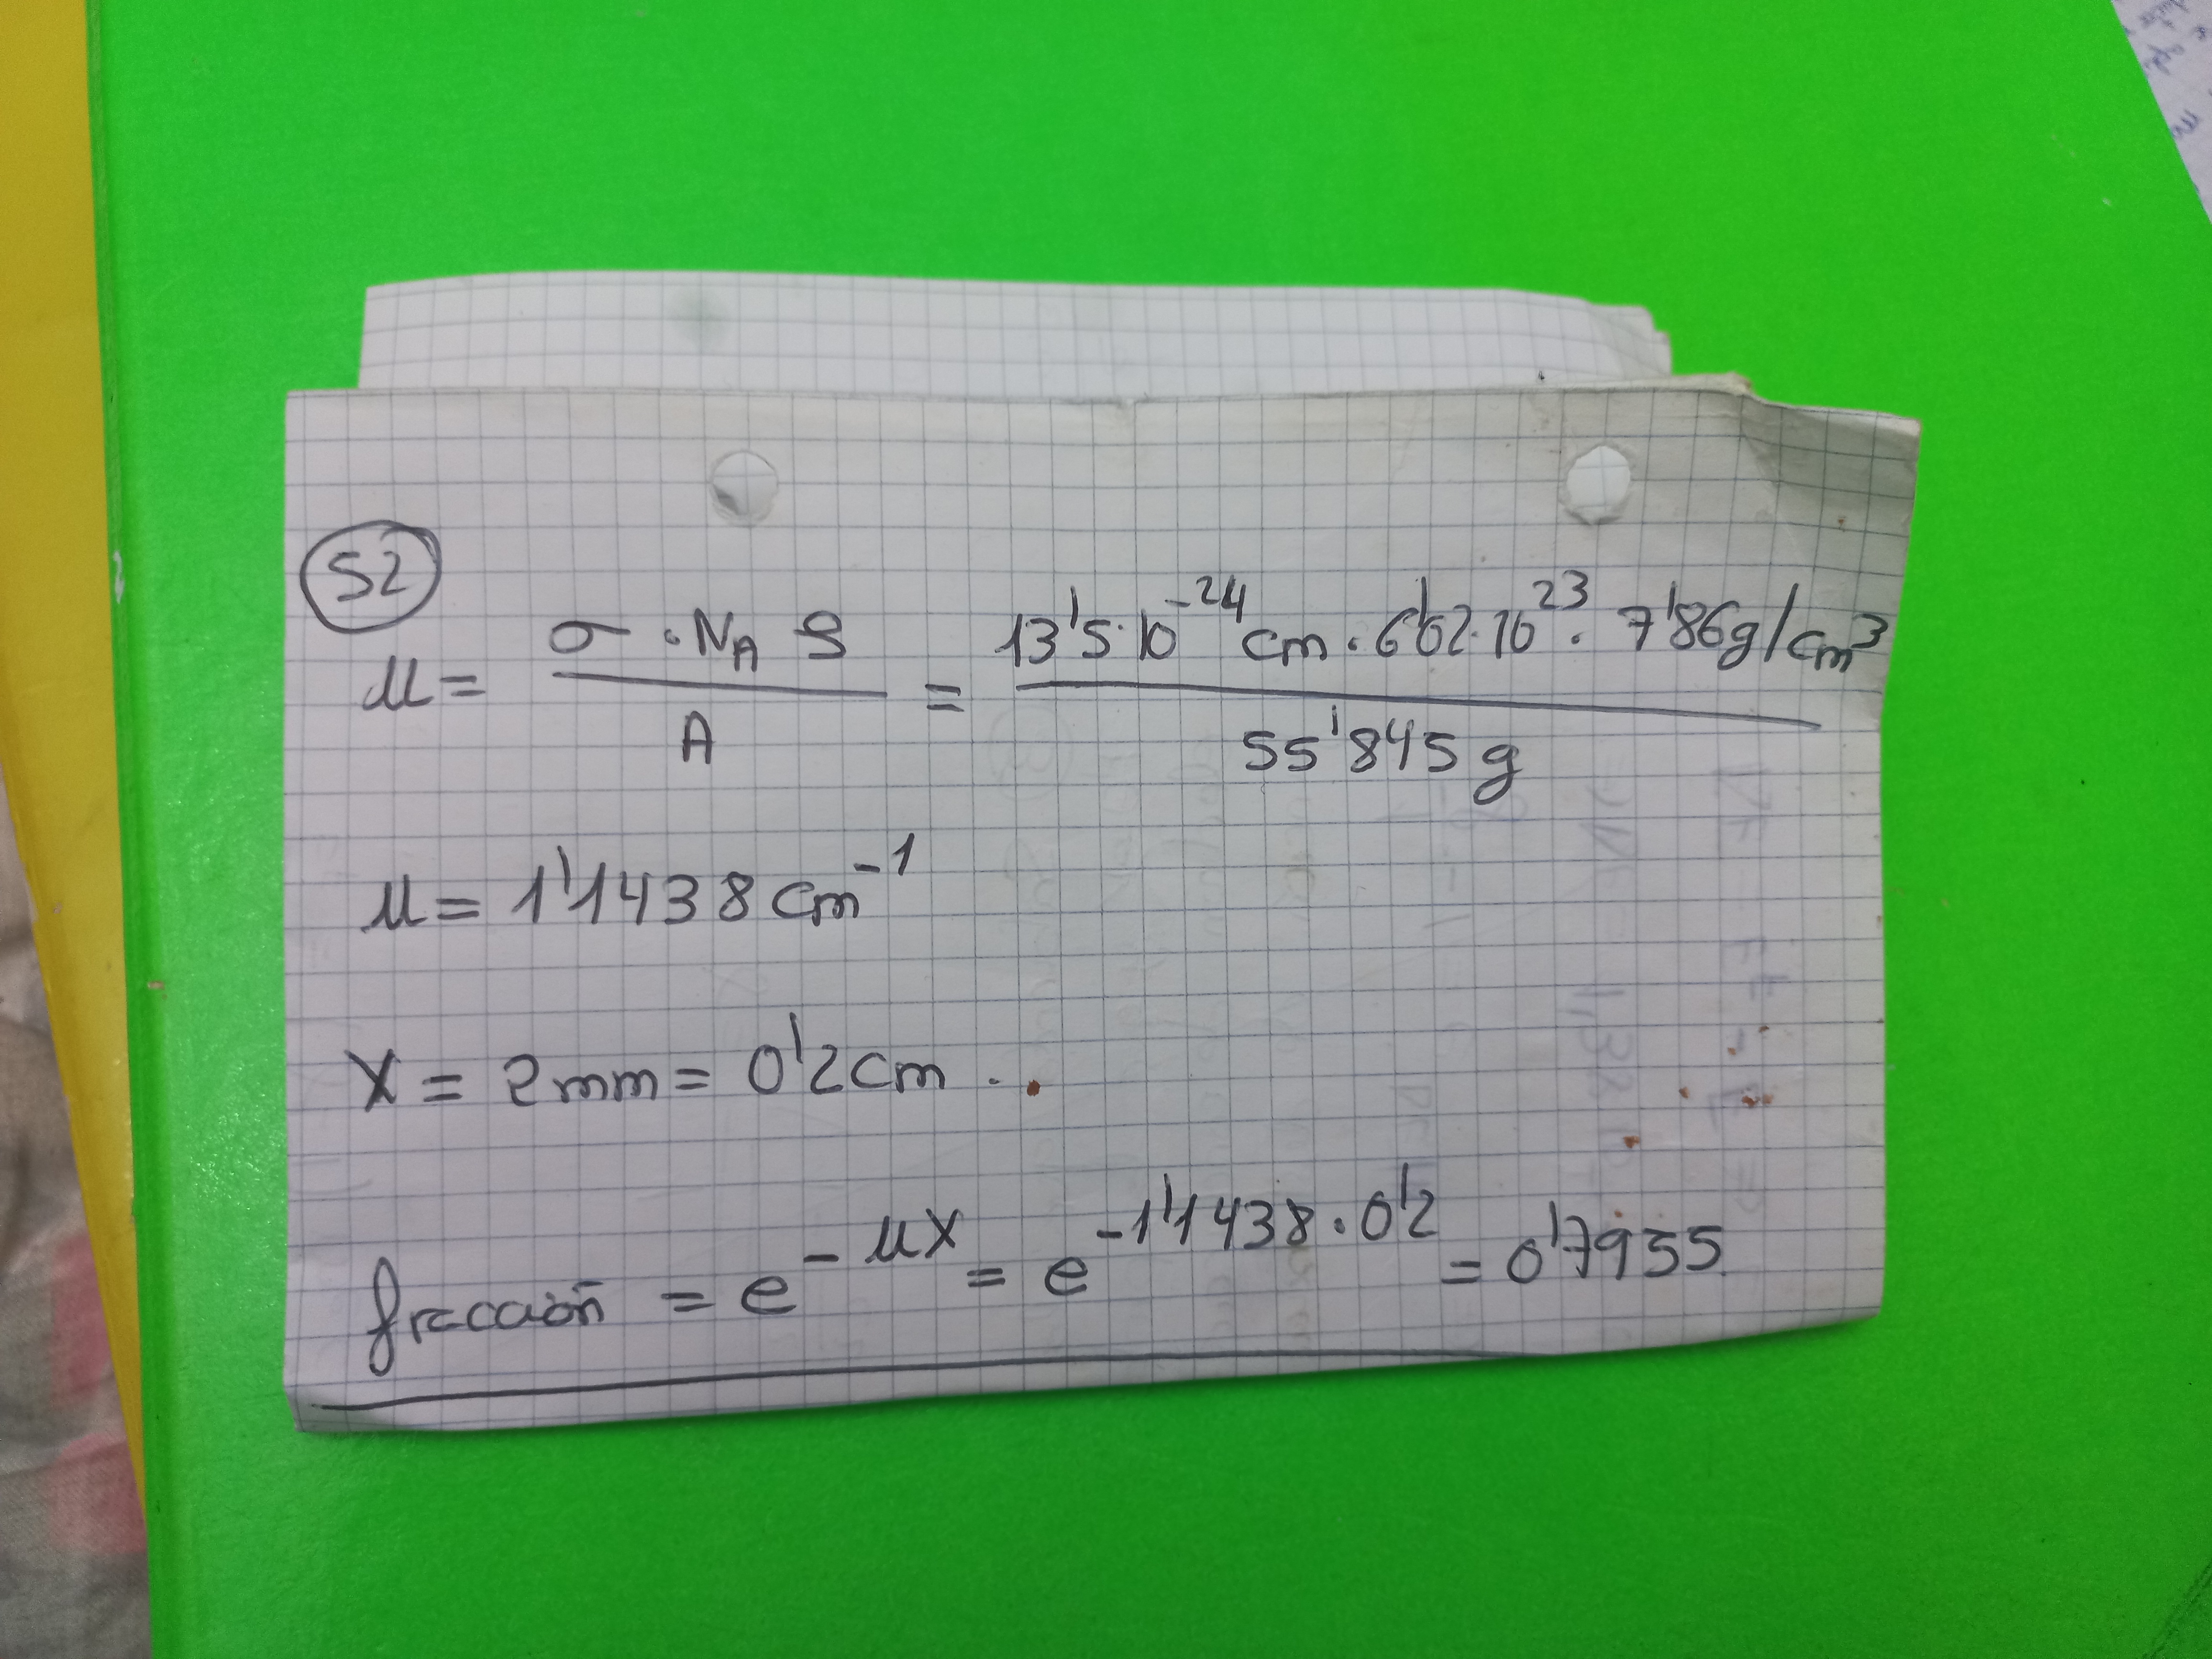 52
μ = σ · N_A ρ / A = 13'5·10^-24 cm · 6'02·10^23 · 7'86g/cm^3 / 55'845 g
μ = 1'1438 cm^-1
x = 2mm = 0'2cm .
fracción = e^-μx = e^-1'1438·0'2 = 0'7955